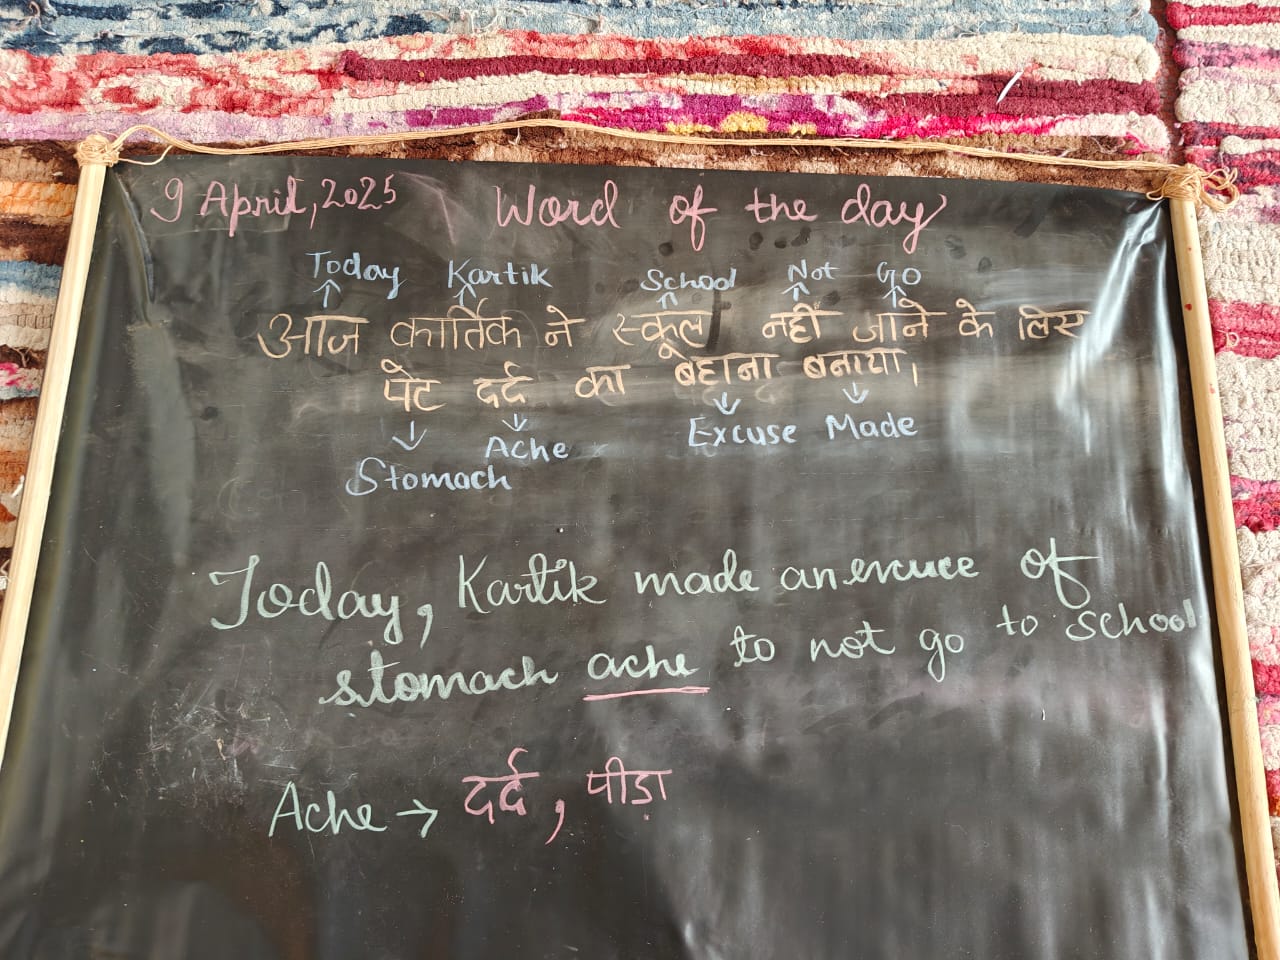 9 April, 2025 Word of the day
Today Kartik School Not Go
आज कार्तिक ने स्कूल नही जाने के लिए
पेट दर्द का बेहाना बनाया।
Stomach Ache Excuse Made
Today, Kartik made an excuse of
stomach ache to not go to school
Ache → दर्द, पीड़ा